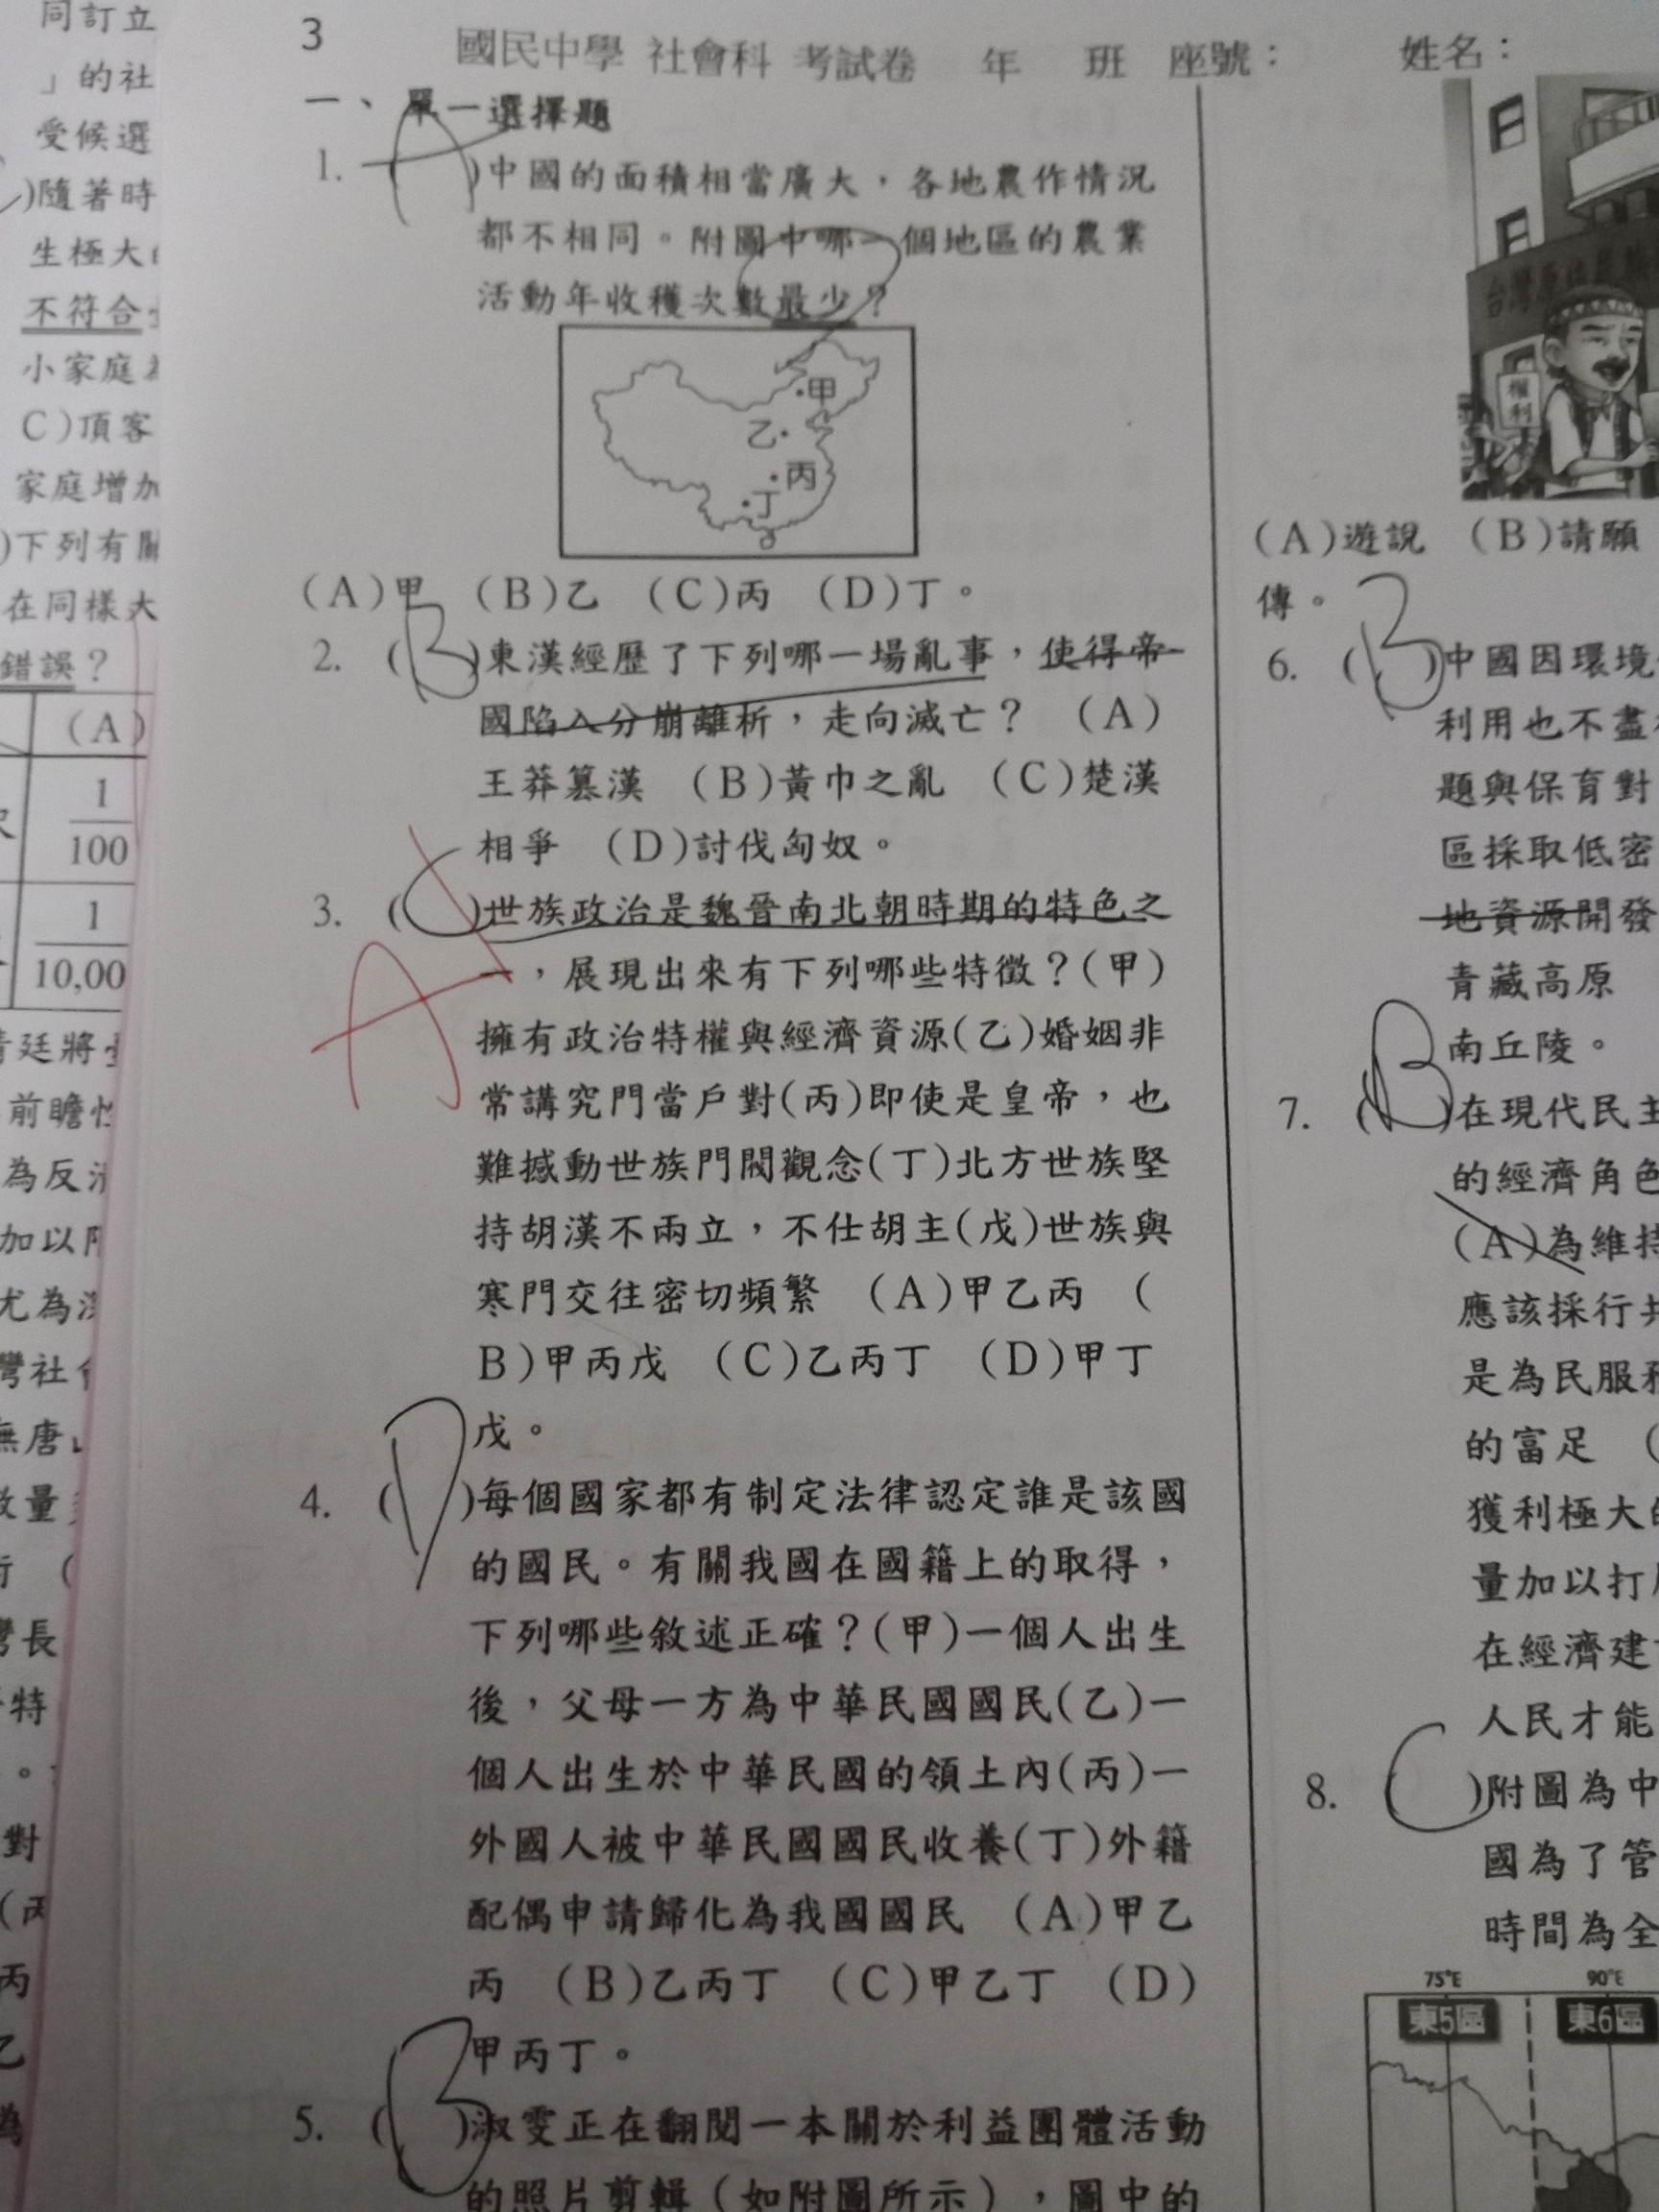 同訂立
」的社
受候選
)隨著時
生極大
不符合
小家庭
C)頂客
家庭增加
)下列有關
在同樣大
錯誤?
(A)
1
100
1
10,00
前瞻性
為反
加以
尤為
灣社
無唐
數量
灣長
特
對
丙
乙
為
3
國民中學 社會科 考試卷 年 班 座號: 姓名:
一、單一選擇題
1. (A)中國的面積相當廣大,各地農作情況
都不相同。附圖中哪一個地區的農業
活動年收穫次數最少?
甲
乙
丙
丁
(A)甲 (B)乙 (C)丙 (D)丁。
2. (B)東漢經歷了下列哪一場亂事,使得帝
國陷入分崩離析,走向滅亡? (A)
王莽篡漢 (B)黃巾之亂 (C)楚漢
相爭 (D)討伐匈奴。
3. (C)世族政治是魏晉南北朝時期的特色之
A
一,展現出來有下列哪些特徵?(甲)
擁有政治特權與經濟資源(乙)婚姻非
常講究門當戶對(丙)即使是皇帝,也
難撼動世族門閥觀念(丁)北方世族堅
持胡漢不兩立,不仕胡主(戊)世族與
寒門交往密切頻繁 (A)甲乙丙 (
B)甲丙戊 (C)乙丙丁 (D)甲丁
戊。
4. (D)每個國家都有制定法律認定誰是該國
的國民。有關我國在國籍上的取得,
下列哪些敘述正確?(甲)一個人出生
後,父母一方為中華民國國民(乙)一
個人出生於中華民國的領土內(丙)一
外國人被中華民國國民收養(丁)外籍
配偶申請歸化為我國國民 (A)甲乙
丙 (B)乙丙丁 (C)甲乙丁 (D)
甲丙丁。
5. (B)淑雯正在翻閱一本關於利益團體活動
的照片剪輯(如附圖所示),圖中的
台灣原住民族
權利
(A)遊說 (B)請願
傳。
6. (B)中國因環境
利用也不盡
題與保育對
區採取低密
地資源開發
青藏高原
南丘陵。
7. (B)在現代民主
的經濟角色
(A)為維持
應該採行共
是為民服務
的富足 (
獲利極大的
量加以打
在經濟建
人民才能
8. (C)附圖為中
國為了管
時間為全
75°E 90°E
東5區 東6區